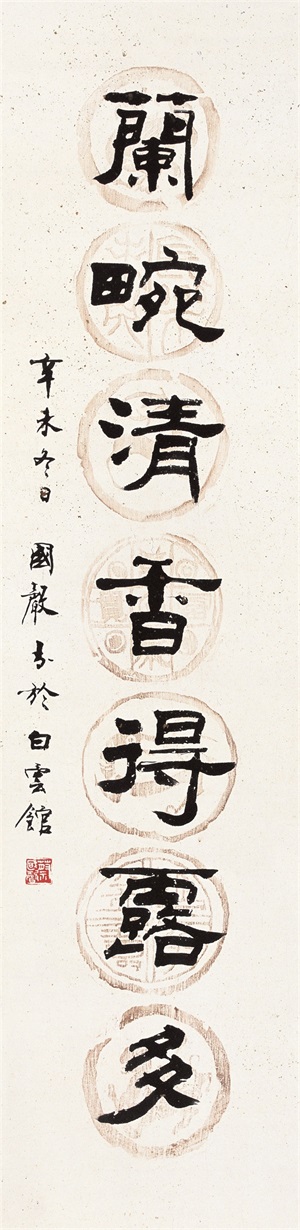 蘭畹清香得露多
辛未冬日國嚴書於白雲館